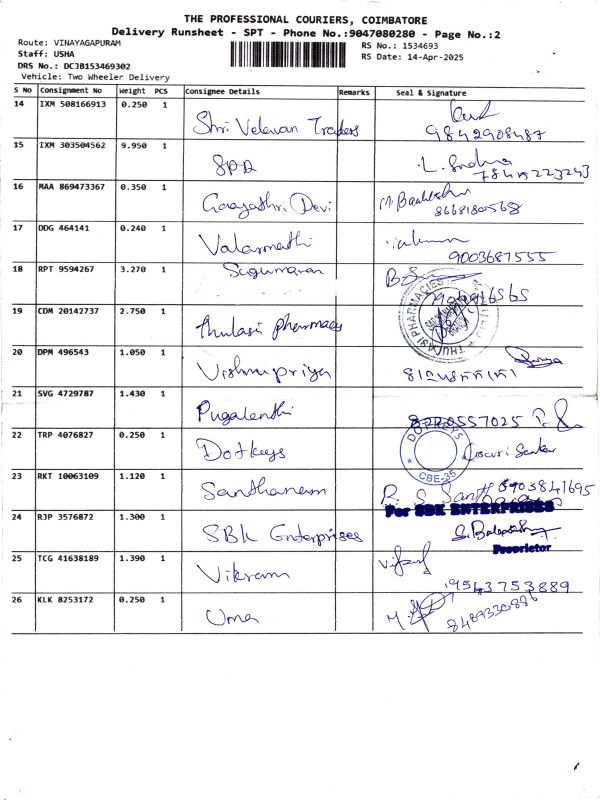 THE PROFESSIONAL COURIERS, COIMBATORE
Delivery Runsheet - SPT - Phone No.:9047080280 - Page No.:2
Route: VINAYAGAPURAM
RS No.: 1534693
Staff: USHA
RS Date: 14-Apr-2025
DRS No.: DCJB153469302
Vehicle: Two Wheeler Delivery
S No Consignment No Weight PCS Consignee Details Remarks Seal & Signature
14 IXM 508166913 0.250 1
Shri Velavan Traders 9842908487
15 IXM 303504562 9.950 1
SPD
16 MAA 869473367 0.350 1
Gaayathri Devi 8668180568
17 DDG 464141 0.240 1
Valarmathi 9003687555
18 RPT 9594267 3.270 1 Sugumaran
19 CDM 20142737 2.750 1
Thulasi pharmacy
THULASI PHARMACIES
20 DPM 496543 1.050 1
Vishnupriya
21 SVG 4729787 1.430 1
Pugalenthi 8220557025
22 TRP 4076827 0.250 1
Dotkeys
DOTKEYS
CBE-35
23 RKT 10063109 1.120 1
Santhanam 6903841695
24 RJP 3576872 1.300 1 For SBK ENTERPRISES
SBK Enterprises
Proprietor
25 TCG 41638189 1.390 1
Vikram 9543753889
26 KLK 8253172 0.250 1
Uma 8489330886